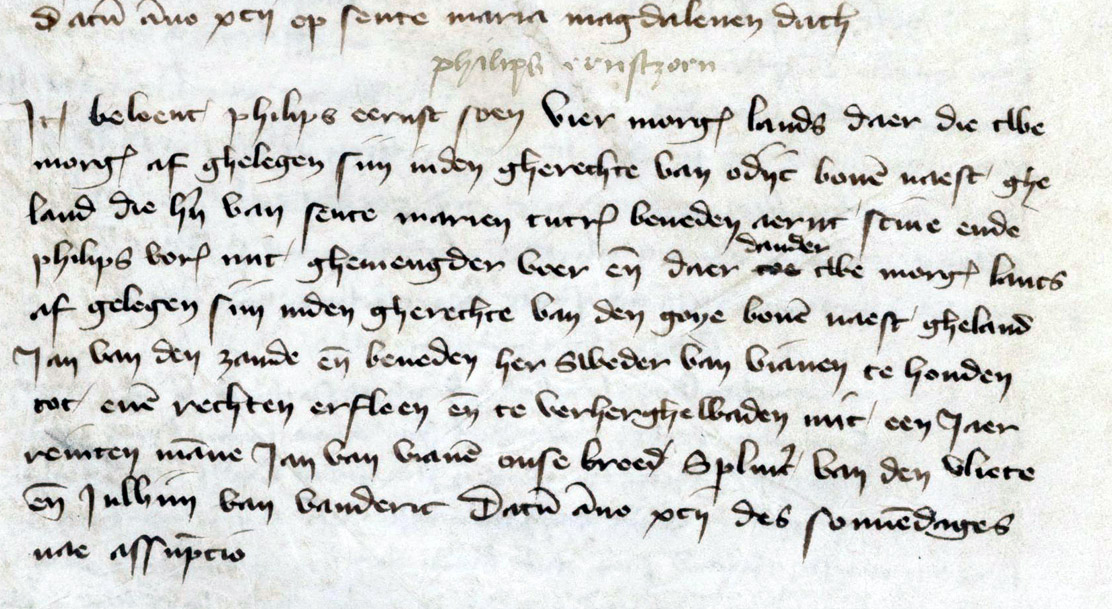 Datū āno xcij op sente maria magdalenen dach
philips ernstzorn
It beleent philips eernst soen vier morgh lands daer die twe
morgh af ghelegen sijn inden gherechte van odijc bouē naest ghe
land die hrn van sente marien tutrh beneden aernt stiue ende
philips vors mit ghemengder voer eñ daer dander twe morgh lants
af gelegen sijn inden gherechte van den goye bouē naest gheland
Jan van den zande eñ beneden her sweder van vianen te houden
tot enē rechten erfleen eñ te verherghewaden mit een Jaer
renten māne Jan van vianē onse broed Splint van den vliete
eñ van Datū āno xcij des sonnēdages
nae assūpcio